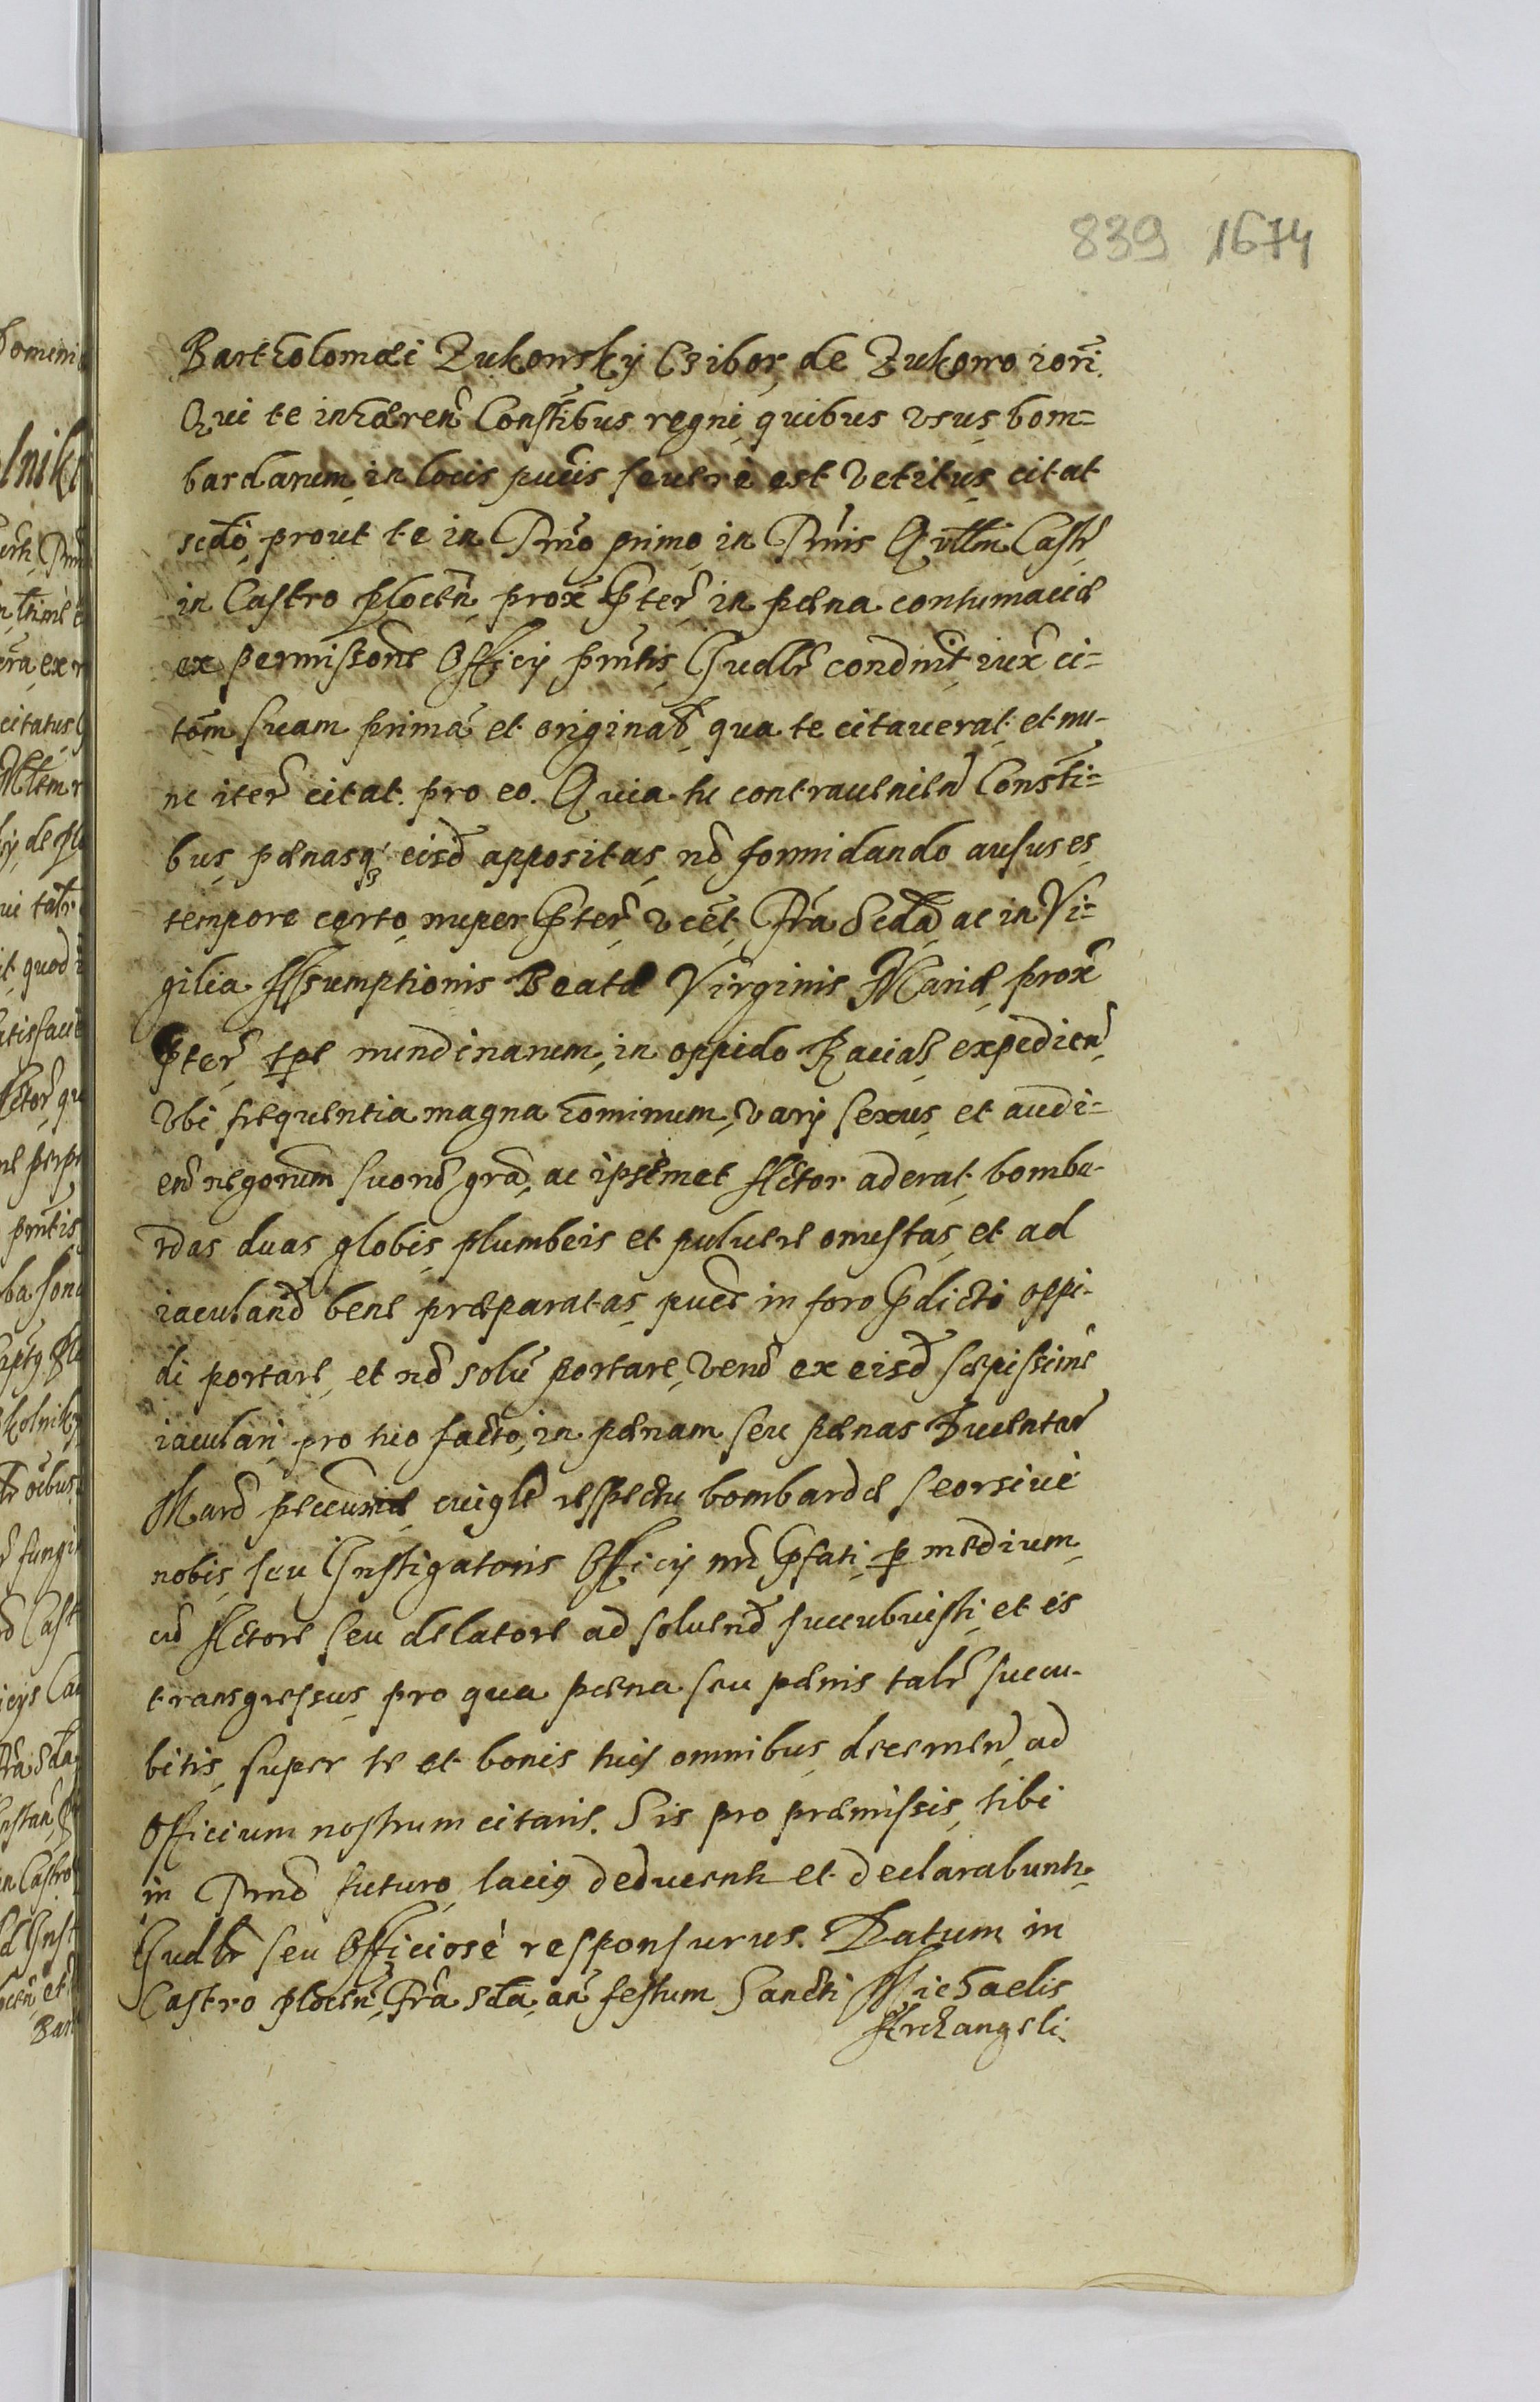 839 1674
Bartholomæi Zukowsky Czibor, de Zukowo iori.
Qui te inhæren Constibus regni quibus vsus bom=
bardarum in locis pucis seuere est vetitus citat
scdo, prout te in Trmo primo in Trmis Qvllm Castr
in Castro plocen prox præter in pæna contumaciæ
ex permissione Officij prntis Iudlr condmt, iux ci=
tom suam prima et original, qua te citauerat et nu-
nc iter citat. pro eo. Quia tu contraueniend Consti=
bus, pænasq eisd appositas nō formidando ausus es
tempore certo nuper præter vcet, Fria Scda ac in Vi=
gilia Assumptionis Beatæ Virginis Mariæ prox
præter tpe nundinarum, in oppido Racias expedien
Vbi frequentia magna hominum, varij sexus et audi=
en negorum suor gra, ac ipsemet Actor aderat, bomba-
rdas duas globis plumbeis et puluere onustas et ad
iaculand bene præparatas puce in foro prædicto oppi-
di portare, et nō solū portare, veru ex eisd sæpissime
iaculari pro tuo facto, in pænam seu pænas Ducentar
Marc pecuniæ cuiglr respectu bombardæ seorsiue
nobis seu Instigatoris Officij nri præfati p medium
cū Actore seu delatore ad soluend succubuisti et es
transgressus pro qua pæna seu pænis talr succu-
bitis, super te et bonis tuis omnibus decernen ad
Officium nostrum citaris. Sis pro præmissis, tibi
in Trmo futuro lacius deducentr et declarabuntr.
Iudlr seu Officiose responsurus. Datum in
Castro plocen, Fria Scda, an festum Sancti Michaelis
Archangeli.